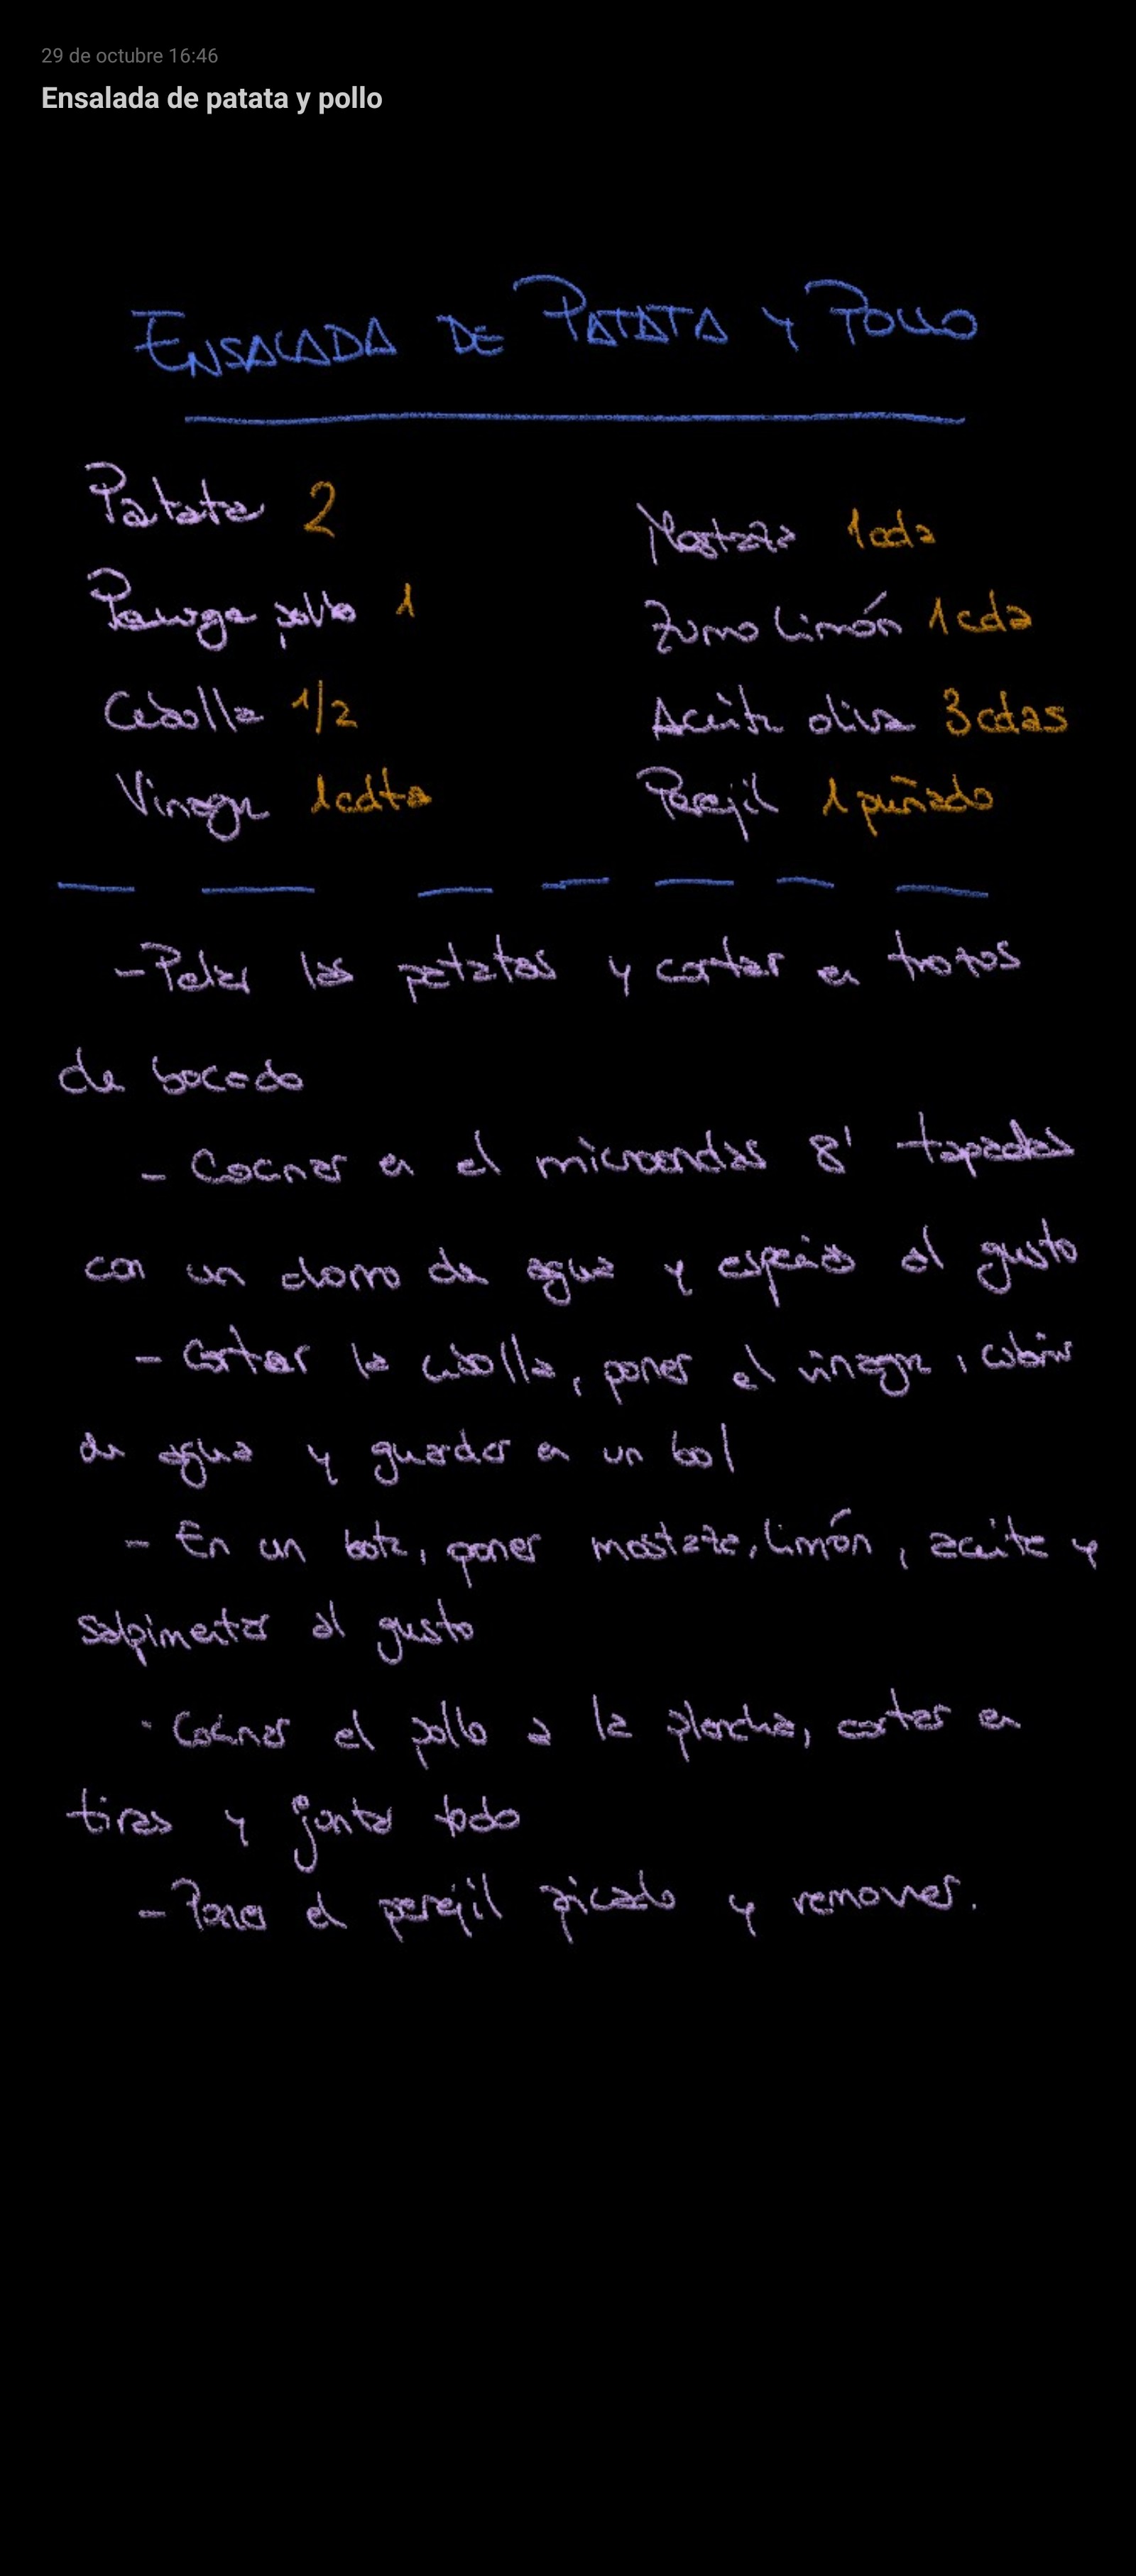 29 de octubre 16:46
Ensalada de patata y pollo
ENSALADA DE PATATA Y POLLO
Patata 2
Mostaza 1cda
Pechuga pollo 1
Zumo Limón 1cda
Cebolla 1/2
Aceite oliva 3cdas
Vinagre 1cdta
Perejil 1 puñado
- Pelar las patatas y cortar en trozos
de bocado
- Cocinar en el microondas 8' tapadas
con un chorro de agua y especias al gusto
- Cortar la cebolla, poner el vinagre, cubrir
de agua y guardar en un bol
- En un bote, poner mostaza, limón, aceite y
salpimentar al gusto
- Cocinar el pollo a la plancha, cortar en
tiras y juntar todo
- Poner el perejil picado y remover.